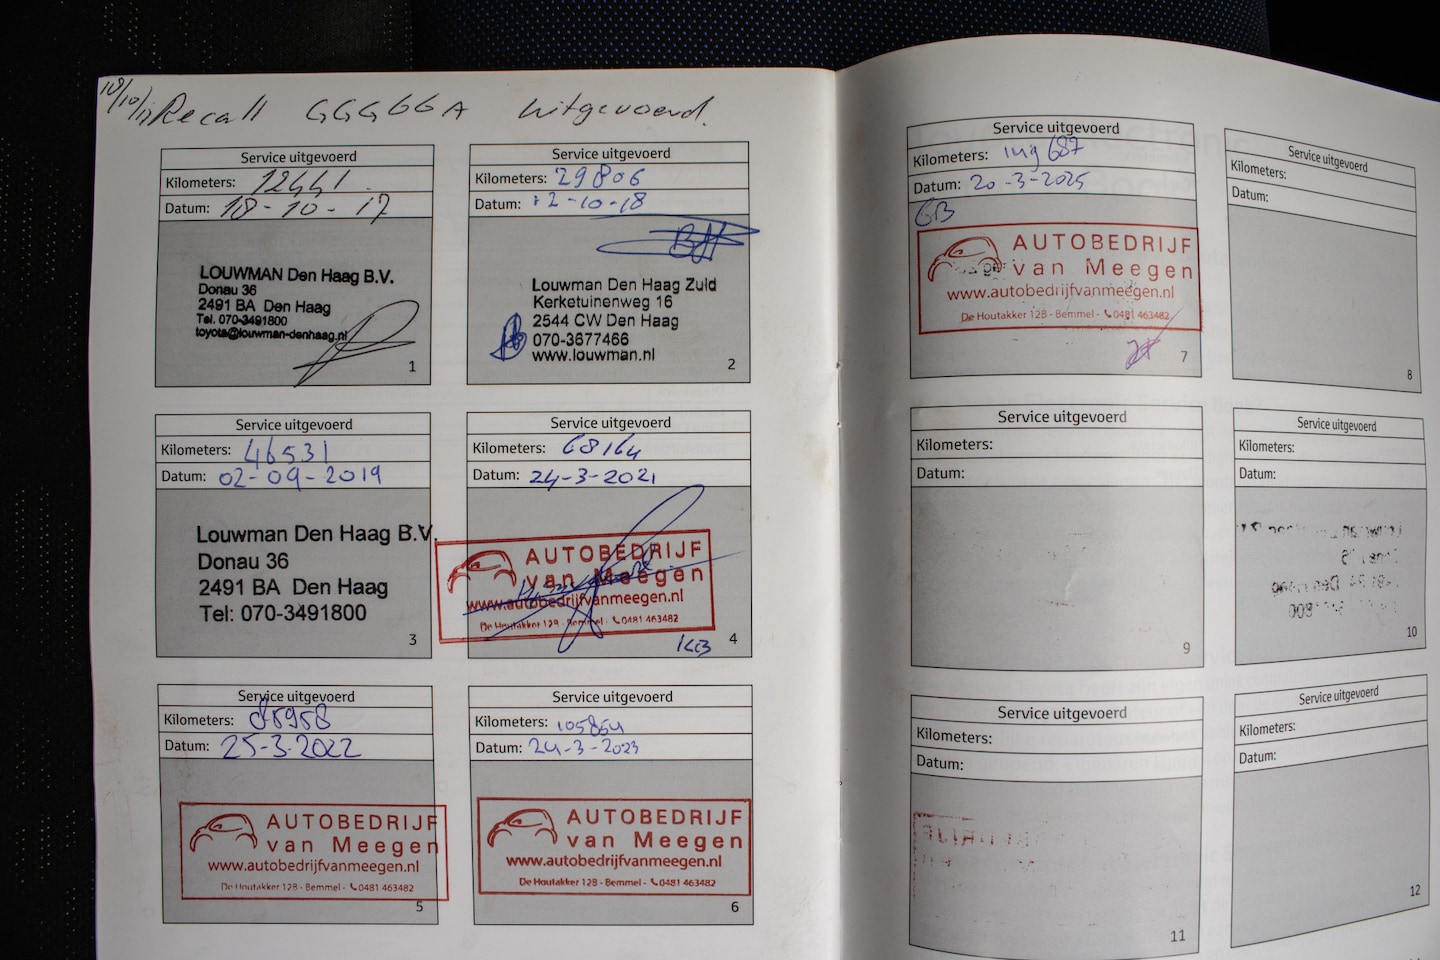 18/10/17 Recall GGGGGA uitgevoerd.
Service uitgevoerd
Kilometers: 12441
Datum: 18-10-17
LOUWMAN Den Haag B.V.
Donau 36
2491 BA Den Haag
Tel. 070-3491800
toyota@louwman-denhaag.nl
1
Service uitgevoerd
Kilometers: 29806
Datum: 12-10-18
Louwman Den Haag Zuid
Kerketuinenweg 16
2544 CW Den Haag
070-3677466
www.louwman.nl
2
Service uitgevoerd
Kilometers: 46531
Datum: 02-09-2019
Louwman Den Haag B.V.
Donau 36
2491 BA Den Haag
Tel: 070-3491800
3
Service uitgevoerd
Kilometers: 68164
Datum: 24-3-2021
AUTOBEDRIJF
van Meegen
www.autobedrijfvanmeegen.nl
De Houtakker 12B - Bemmel - 0481 463482
KB
4
Service uitgevoerd
Kilometers: 85958
Datum: 25-3-2022
AUTOBEDRIJF
van Meegen
www.autobedrijfvanmeegen.nl
De Houtakker 12B - Bemmel - 0481 463482
5
Service uitgevoerd
Kilometers: 105854
Datum: 24-3-2023
AUTOBEDRIJF
van Meegen
www.autobedrijfvanmeegen.nl
De Houtakker 12B - Bemmel - 0481 463482
6
Service uitgevoerd
Kilometers:
Datum: 20-3-2025
GB
AUTOBEDRIJF
van Meegen
www.autobedrijfvanmeegen.nl
De Houtakker 12B - Bemmel - 0481 463482
7
Service uitgevoerd
Kilometers:
Datum:
8
Service uitgevoerd
Kilometers:
Datum:
9
Service uitgevoerd
Kilometers:
Datum:
10
Service uitgevoerd
Kilometers:
Datum:
11
Service uitgevoerd
Kilometers:
Datum:
12